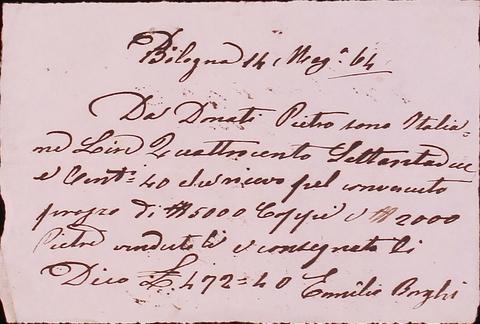 Bologna 14 Mag.º 64
Da Donati Pietro sono Italia=
ne Lire Quattrocento Settantadue
e Cent.i 40 che ricevo pel convenuto
prezzo di N 5000 Coppi e N 2000
Pietre vendute li e consegnate li
Dico £. 472=40 Emilio Borghi